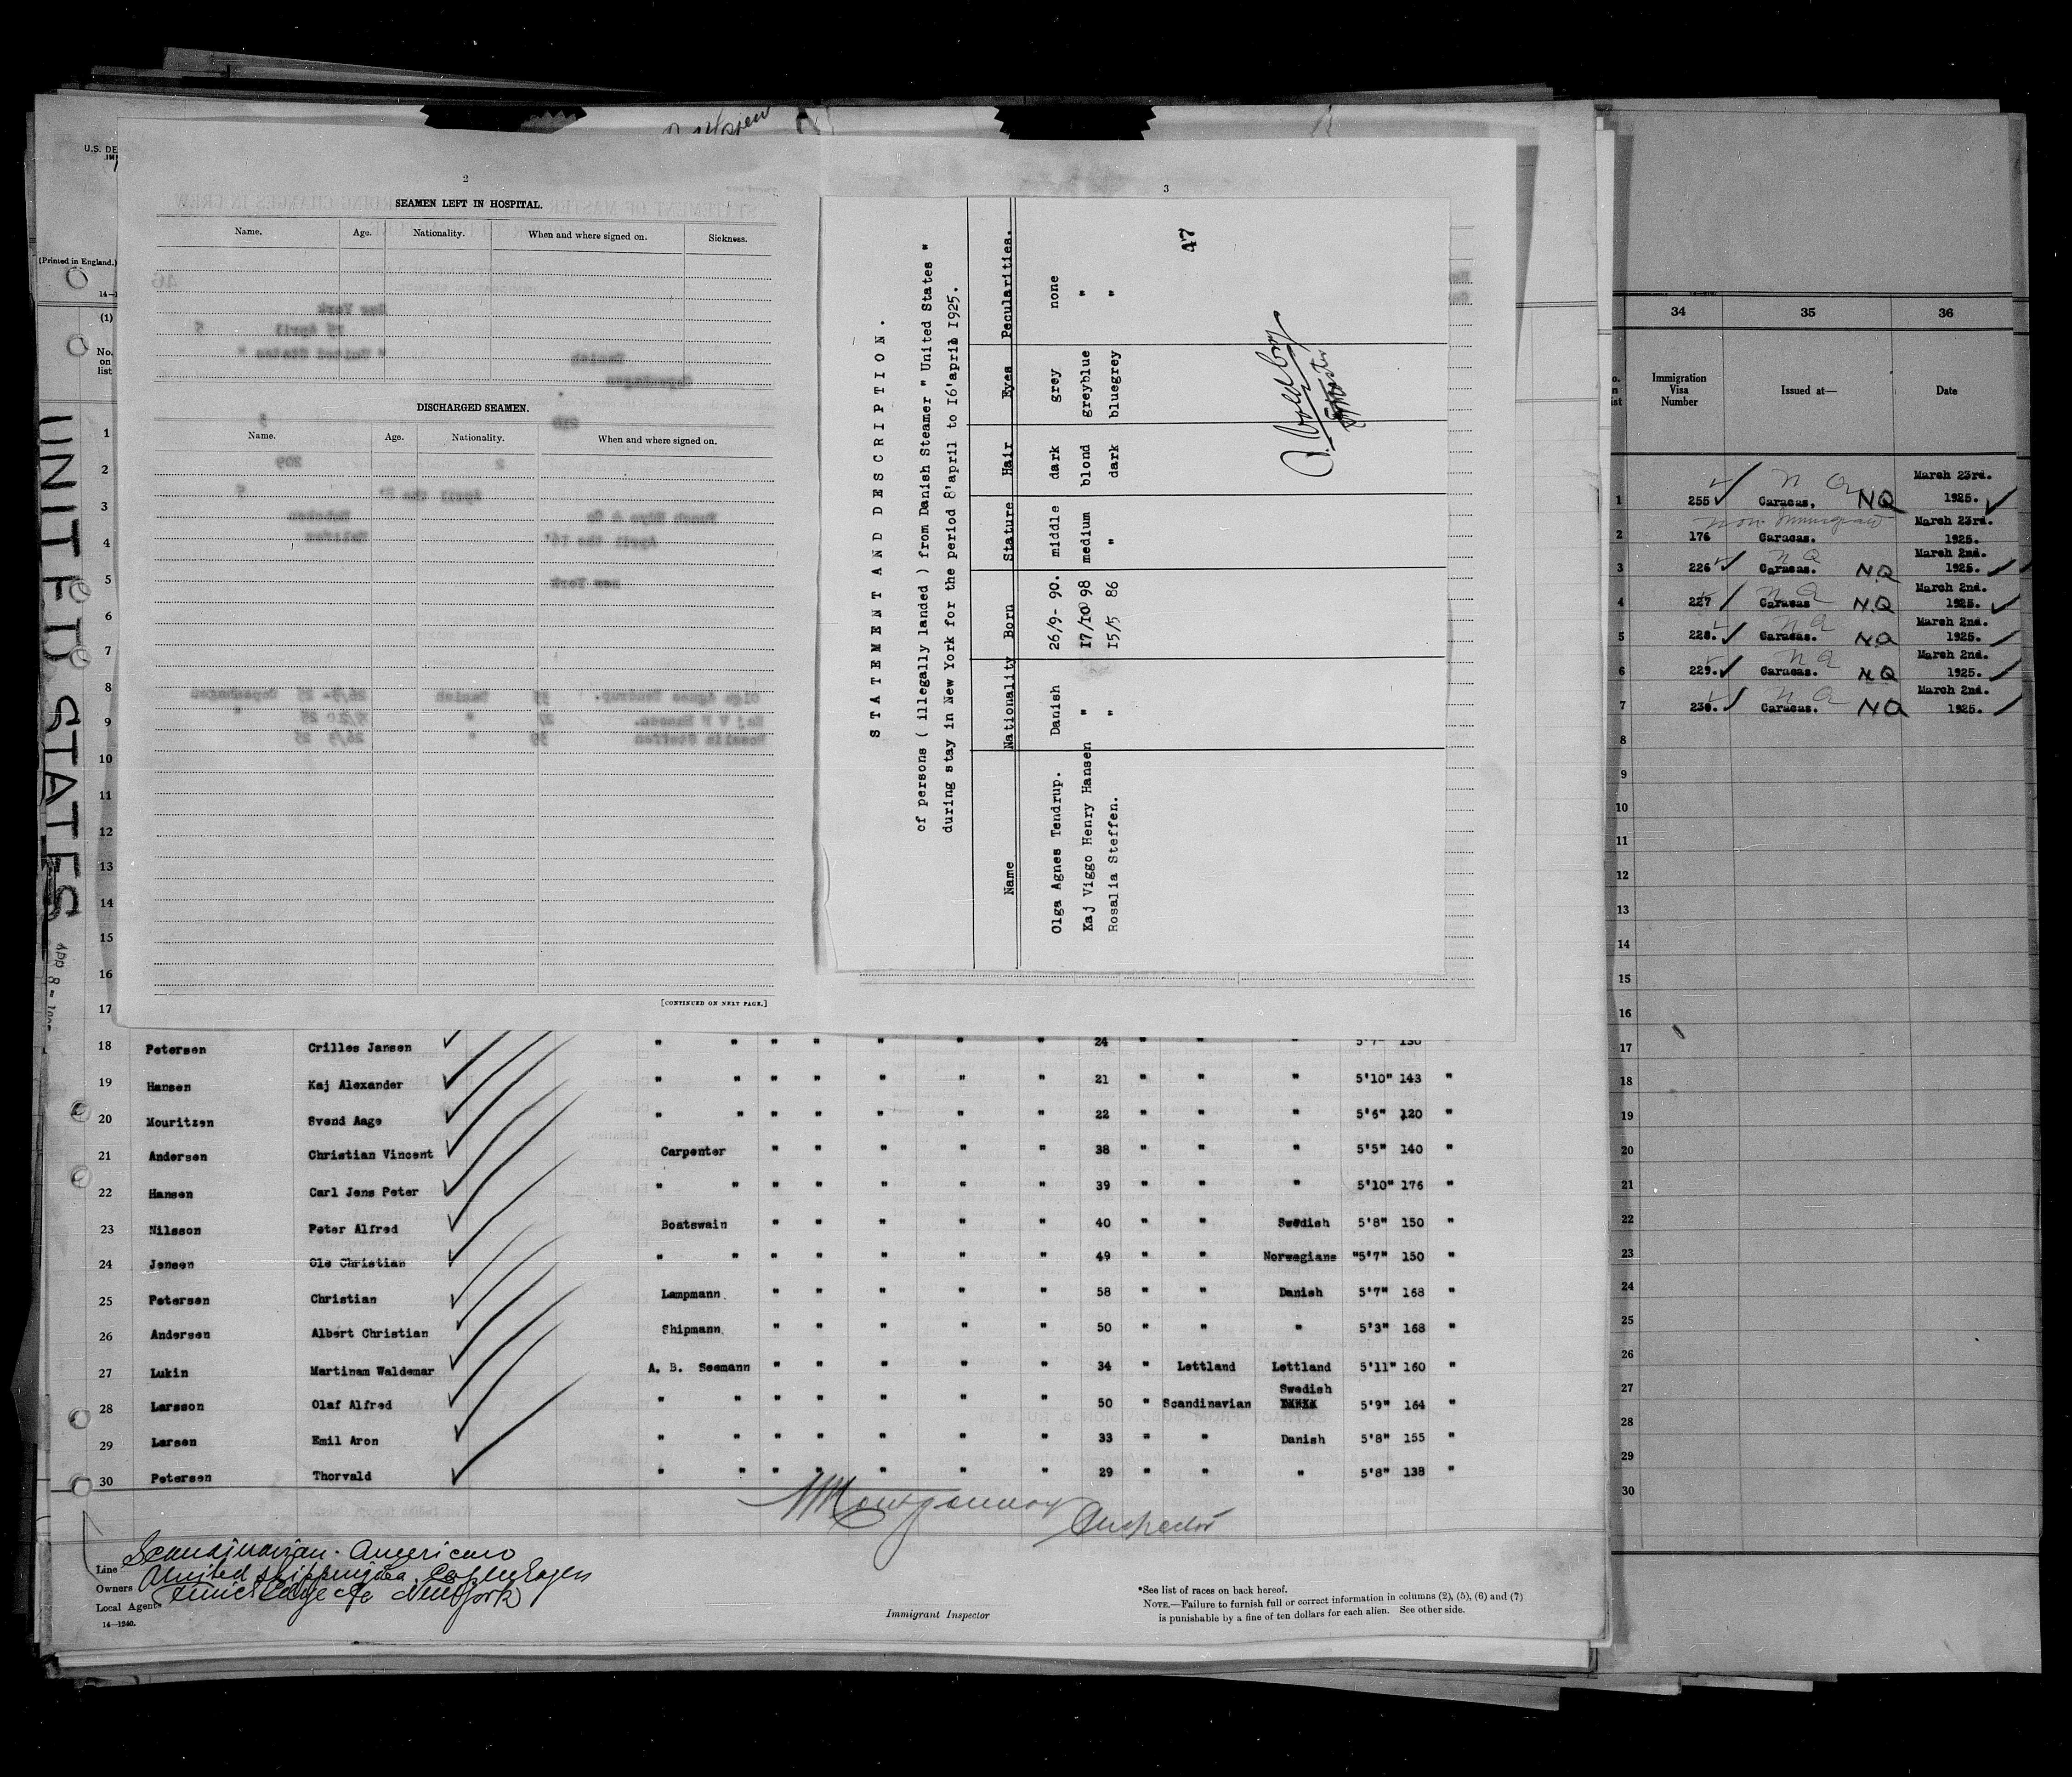 U.S. DE
(Printed in England.)
14—1
(1)
No.
on
list
UNITED STATES
2
SEAMEN LEFT IN HOSPITAL.
Name. Age. Nationality. When and where signed on. Sickness.
DISCHARGED SEAMEN.
Name. Age. Nationality. When and where signed on.
[CONTINUED ON NEXT PAGE.]
1
2
3
4
5
6
7
8
9
10
11
12
13
14
15
16
17
3
STATEMENT AND DESCRIPTION.
of persons ( illegally landed ) from Danish Steamer " United States "
during stay in New York for the period 8'april to 16'april 1925.
Name Nationality Born Stature Hair Eyes Pecularities.
Olga Agnes Tendrup. Danish 26/9- 90. middle dark grey none
Kaj Viggo Henry Hansen " 17/10 98 medium blond greyblue "
Rosalia Steffen. " 15/5 86 " dark bluegrey "
47
18 Petersen Crilles Jansen " " " " " " " 24 " " " 5'7" 130 "
19 Hansen Kaj Alexander " " " " " " " 21 " " " 5'10" 143 "
20 Mouritzen Svend Aage " " " " " " " 22 " " " 5'6" 120 "
21 Andersen Christian Vincent Carpenter " " " " " 38 " " " 5'5" 140 "
22 Hansen Carl Jens Peter " " " " " " " 39 " " " 5'10" 176 "
23 Nilsson Peter Alfred Boatswain " " " " " 40 " " Swedish 5'8" 150 "
24 Jensen Ole Christian " " " " " " " 49 " " Norwegians "5'7" 150 "
25 Petersen Christian Lampmann. " " " " " 58 " " Danish 5'7" 168 "
26 Andersen Albert Christian Shipmann. " " " " " 50 " " " 5'3" 168 "
27 Lukin Martinam Waldemar A. B. Seemann " " " " " 34 " Lettland Lettland 5'11" 160 "
28 Larsson Olaf Alfred " " " " " " " 50 " Scandinavian Swedish 5'9" 164 "
29 Larsen Emil Aron " " " " " " " 33 " " Danish 5'8" 155 "
30 Petersen Thorvald " " " " " " " 29 " " " 5'8" 138 "
Montgomery Inspector
Line Scandinavian - American
Owners United Shipping Co. Copenhagen
Local Agents Funch Edye Co New York
14—1240.
Immigrant Inspector
*See list of races on back hereof.
NOTE.—Failure to furnish full or correct information in columns (2), (5), (6) and (7)
is punishable by a fine of ten dollars for each alien. See other side.
34 35 36
Immigration
Visa
Number
Issued at—
Date
1 255 Caracas. NQ March 23rd. 1925.
2 176 Non Immigrant Caracas. March 23rd. 1925.
3 226 Caracas. N.Q March 2nd. 1925.
4 227 Caracas N.Q March 2nd. 1925.
5 228. Caracas. NQ March 2nd. 1925.
6 229. Caracas. NQ March 2nd. 1925.
7 230. Caracas. NQ March 2nd. 1925.
8
9
10
11
12
13
14
15
16
17
18
19
20
21
22
23
24
25
26
27
28
29
30